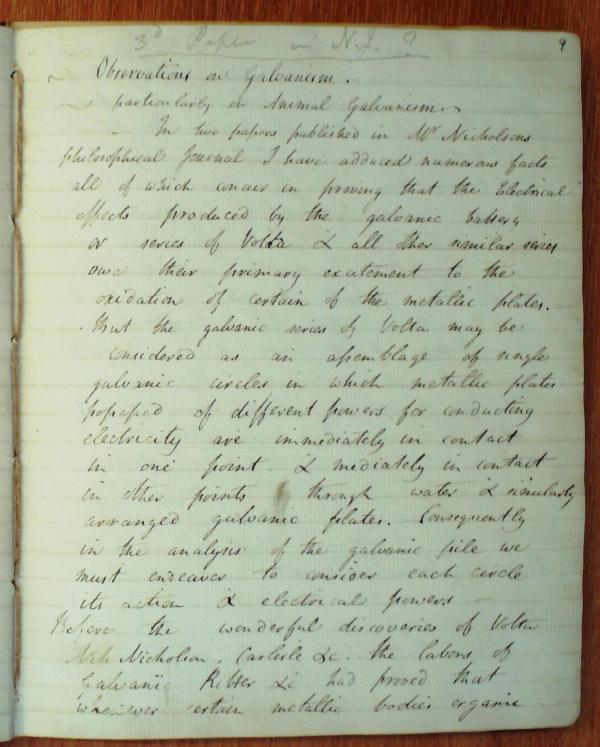 3d Paper in N.J. ?
9
Observations on Galvanism.
particularly on Animal Galvanism
In two papers published in Mr Nicholsons
philosophical Journal I have adduced numerous facts
all of which concur in proving that the Electrical
effects produced by the galvanic battery
or series of Volta & all other similar series
owe their primary excitement to the
oxidation of certain of the metallic plates.
That the galvanic series of Volta may be
considered as an assemblage of single
galvanic circles in which metallic plates
possessed of different powers for conducting
electricity are immediately in contact
in one point & mediately in contact
in other points through water & similarly
arranged galvanic plates. Consequently
in the analysis of the galvanic pile we
must endeavor to consider each circle
its action & electrical powers
Before the wonderful discoveries of Volta
Nicholson, Carlisle &c. the labors of
Galvani Ritter &c had proved that
whenever certain metallic bodies organic